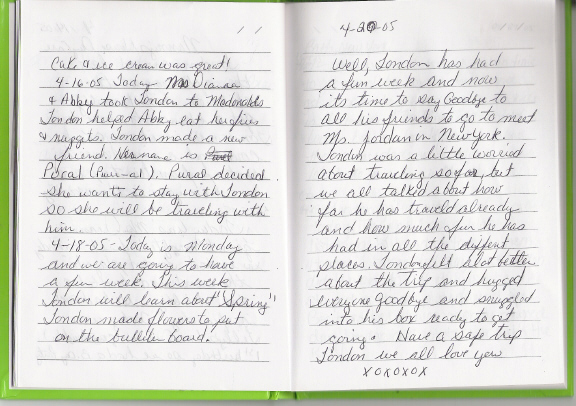 Cake & ice cream was great!
4-16-05 Today Mrs Dianna
& Abby took London to Macdonalds
London helped Abby eat her fries
& nuggets. London made a new
friend. Her name is
Poral (Purr-al). Pural decided
she wants to stay with London
so she will be traveling with
him.
4-18-05 - Today is Monday
and we are going to have
a fun week. This week
London will learn about "Spring"
London made flowers to put
on the bulletin board.
4-20-05
Well, London has had
a fun week and now
its time to say Goodbye to
all his friends to go to meet
Ms. Jordan in New York.
London was a little worried
about traveling so far, but
we all talked about how
far he has traveld already
and how much fun he has
had in all the diffent
places. London felt alot better
about the trip and hugged
everyone goodbye and snuggled
into his box ready to get
going. Have a safe trip
London we all love you
XOXOXOX